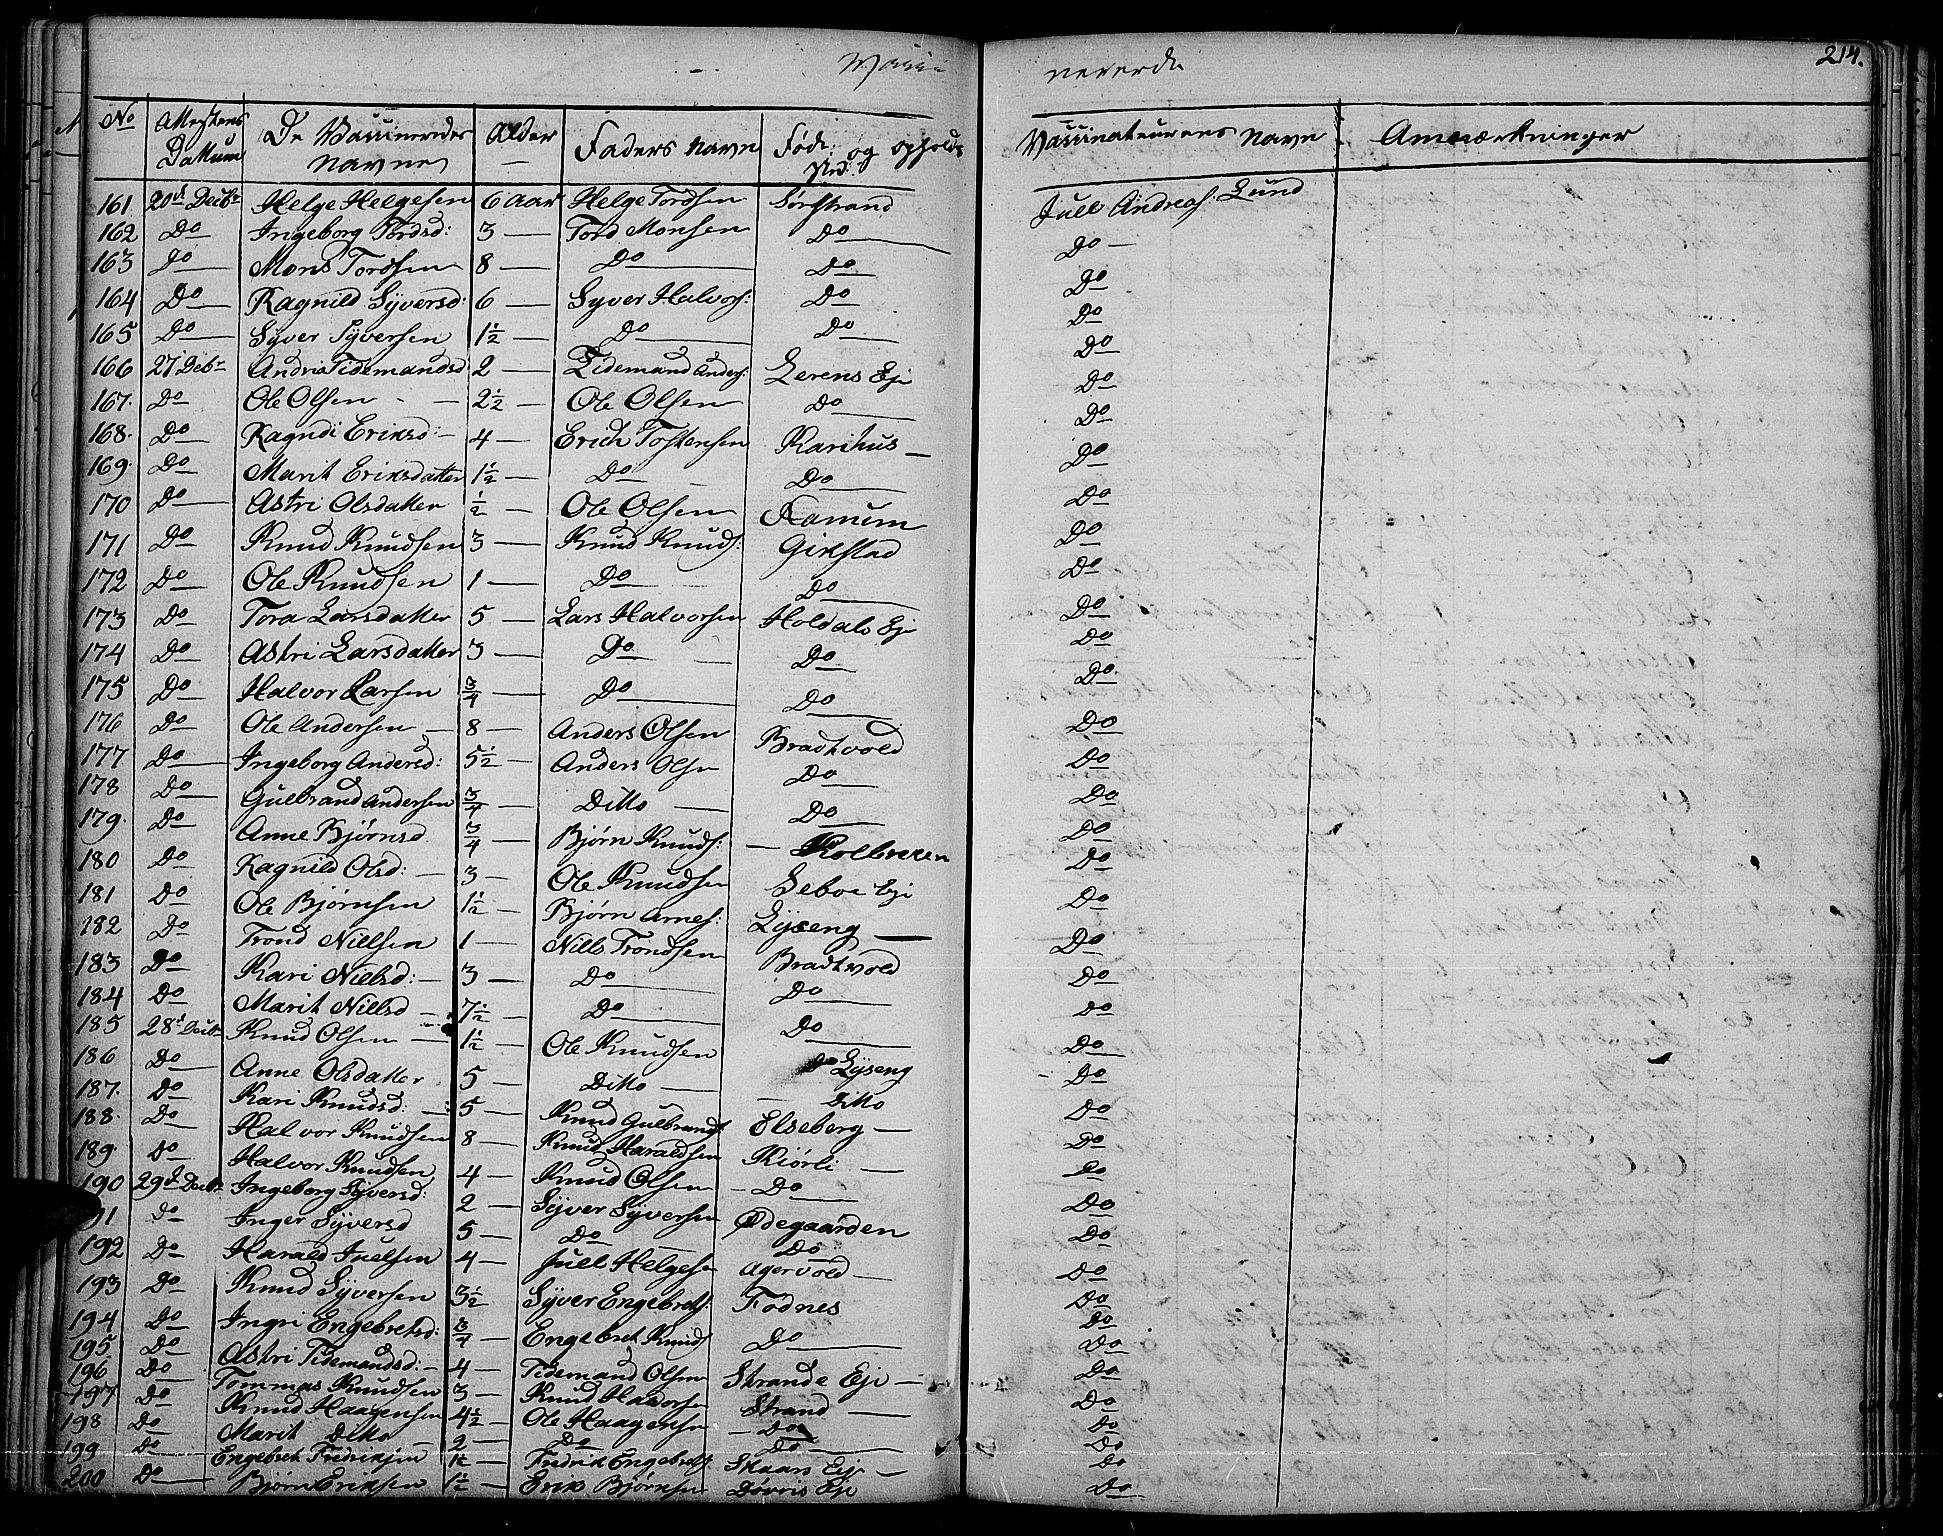 Vacci nerede 214.
No Attestens Dattum De Vaccineredes Navne Alder Faders Navn Føde og opholds Sted Vaccinateurens Navn Anmærkninger
161 20d Decbr Helge Helgesen 6 Aar Helge Tordsen Sørstrand Juel Andreas Lund
162 Do Ingeborg Tordsd: 3 — Tord Monsen Do Do
163 Do Mons Tordsen 8 — Do Do Do
164 Do Ragnild Syversd: 6 — Syver Halvors: Do Do
165 Do Syver Syversen 1½ — Do Do Do
166 27 Decbr Andria Tidemandsd 2 — Tidemand Anders: Lerens Eje Do
167. Do Ole Olsen — 2½ — Ole Olsen Do Do
168. Do Ragndi Eriksd: — 4 — Erich Tostensen Karihus Do
169. Do Marit Eriksdatter 1½ — Do Do Do
170 Do Astri Olsdatter ½ — Ole Olsen Ramum Do
171 Do Knud Knudsen 3 — Knud Knuds: Girstad Do
172 Do Ole Knudsen 1 — Do Do Do
173 Do Tora Larsdatter 5 — Lars Halvorsen Holdals Eje Do
174 Do Astri Larsdatter 3 — Do Do Do
175 Do Halvor Larsen ¾ — Do Do Do
176 Do Ole Andersen — 8 — Anders Olsen Bradtvold Do
177 Do Ingeborg Andersd: 5½ — Anders Olsn Do Do
178 Do Gulbrand Andersen ¾ — Ditto — Do Do
179. Do Anne Bjørnsd ¾ — Bjørn Knuds: — Kolbreken Do
180 Do Ragnild Olsd: — 3 — Ole Knudsen Seboe Eje Do
181 Do Ole Bjørnsen 1½ — Bjørn Arnes: Lyseng — Do
182 Do Trond Nielsen 1 — Niels Trondsen Bradtvold Do
183 Do Kari Nielsd: — 3 — Do Do Do
184 Do Marit Nielsd — 7½ — Do Do Do
185 28d Decbr Knud Olsen — 1½ — Ole Knudsen Lyseng Do
186 Do Anne Olsdatter 5 — Ditto — Ditto Do
187. Do Kari Knudsd: — 5 — Knud Gulbrands: Elseberg — Do
188. Do Halvor Knudsen 8 — Knud Haraldsen Kiørli — Do
189. Do Halvor Knudsen 4 — Knud Olsen — Do Do
190 29d Decbr Ingeborg Syversd: 2 — Syver Syversen Ødegaarden Do
91 Do Inger Syversd 5 — Do Do Do
192 Do Harald Juelsen 4 — Juel Helgesen Agervold — Do
193 Do Knud Syversen 3½ — Syver Engebrets: Fodnes Do
194 Do Ingri Engebretsd: ¾ — Engebret Knuds Do Do
195 Do Astri Tidemandsd: — 4 — Tidemand Olsen Strande Eje — Do
196 Do Tommas Knudsen 3 — Knud Halvorsen Strand — Do
197 Do Knud Haagensen 4½ — Ole Haagensen — Do Do
198 Do Marit Ditto — 2 — Do Do Do
199 Do Engebret Fredriksen 1½ — Fredrik Engebrets: Skaars Eje — Do
200 Do Bjørn Eriksen 1½ — Erik Bjørnsen Dovris Eje Do